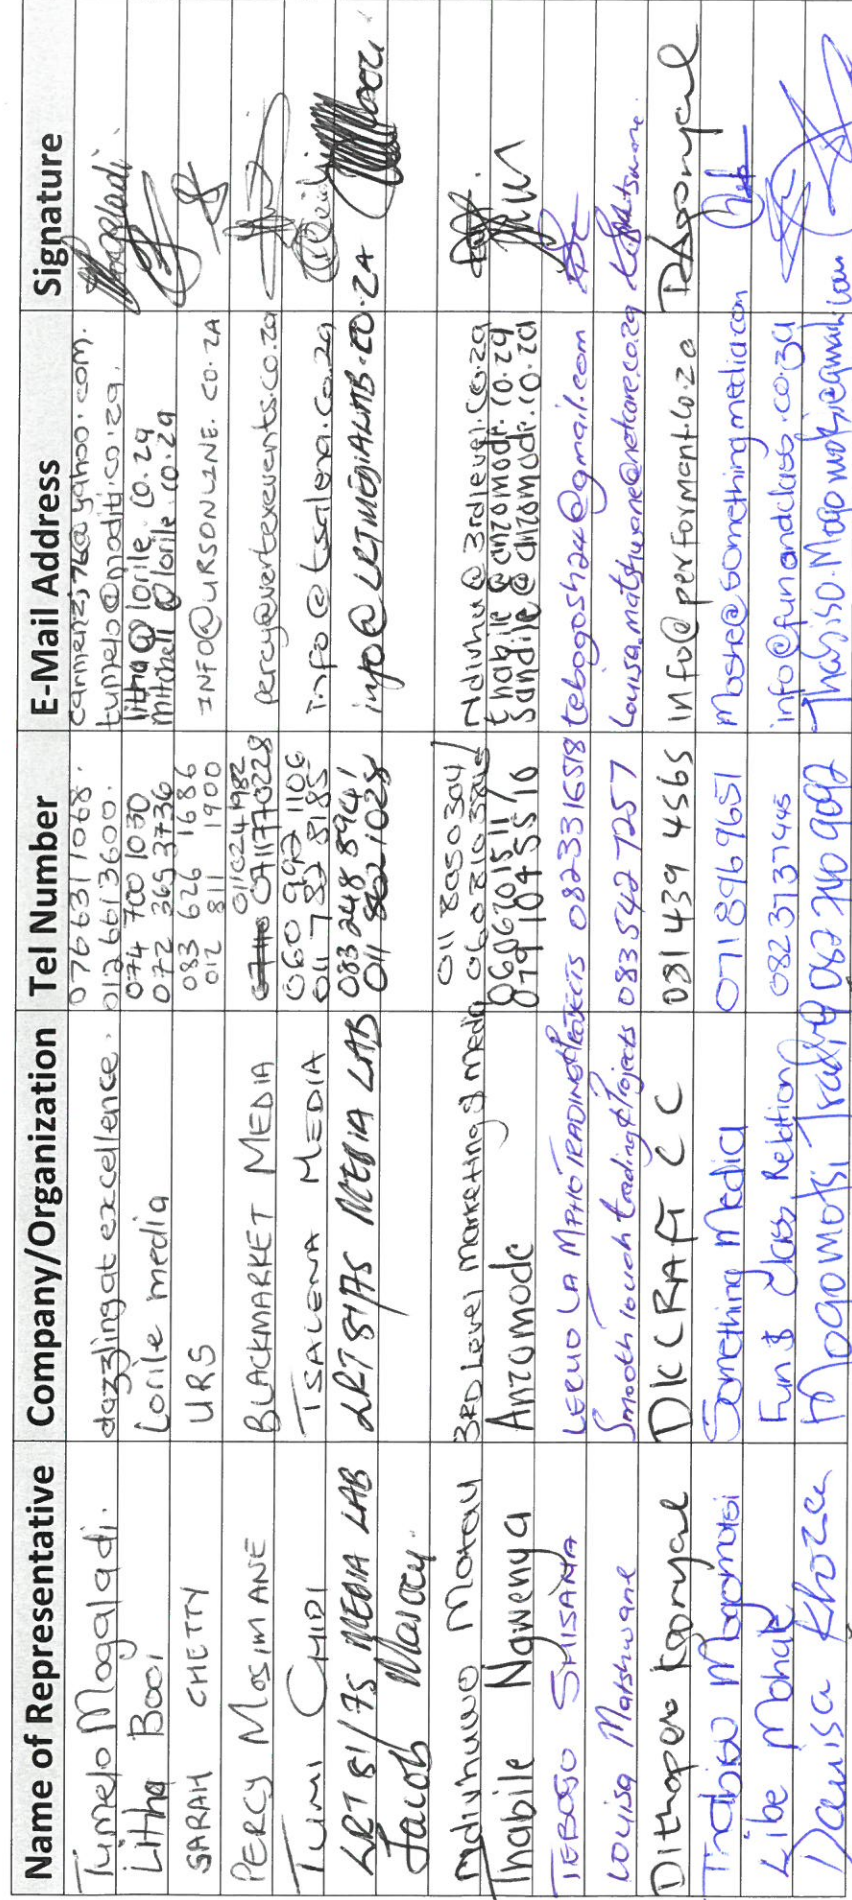 Name of Representative Company/Organization Tel Number E-Mail Address Signature
Tumelo Mogaladi. dazzling at excellence. 0766311068. carmenzj76@yahoo.com.
012 6013600. tumelo@moditi.co.za. Mogaladi.
Litha Booi Lorile media 074 700 1030 litha@lorile.co.za
072 365 3736 mitchell@lorile.co.za
SARAH CHETTY URS 083 626 1686 INFO@URSONLINE.CO.ZA
012 811 1900
PERCY MOSIMANE BLACKMARKET MEDIA 0110244982
0711770228 percy@vertexevents.co.za
TUMI CHIDI TSALENA MEDIA 060 992 1106 info@tsalena.co.za
011 782 8185
LRT 81/75 MEDIA LAB LRT 81/75 MEDIA LAB 083 248 8941 info@LRTMEDIALAB.CO.ZA
Jacob Maroey. 011 862 1028
Ndivhuwo Motau 3RD Level Marketing & Media 011 8050304/ Ndivhu@3rdlevel.co.za
Thabile Ngwenya Anzomode 0606201511/ thabile@anzomode.co.za
079 104 5516 sandile@anzomode.co.za
TEBOGO SHISANA LERUO LA MPHO TRADING & PROJECTS 0823316518 tebogosh24@gmail.com
Louisa Matshwane Smooth Touch trading & Projects 083 542 7257 Louisa.matshwane@netcare.co.za
Dithapelo Kgonyal DKC CRAFT CC 081 439 4565 info@performant.co.za
Thabiso Mogomotsi Something Media 0718969651 moshe@somethingmedia.com
Libe Mohale Fun & Class Relation 0823137445 info@funandclass.co.za
Danisa Khoza Mogomotsi Trading 082 740 9092 Thabiso.Mogomotsi@gmail.com